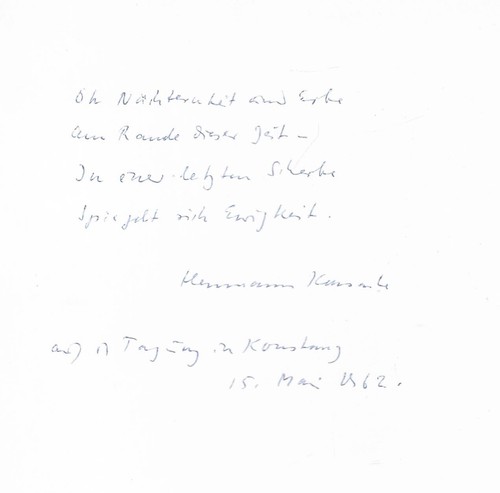 Oh Nüchternheit und Erbe
am Rande dieser Zeit –
In einer letzten Scherbe
spiegelt sich Ewigkeit.
Hermann Kasack
auf d Tagung in Konstanz
15. Mai 1962.